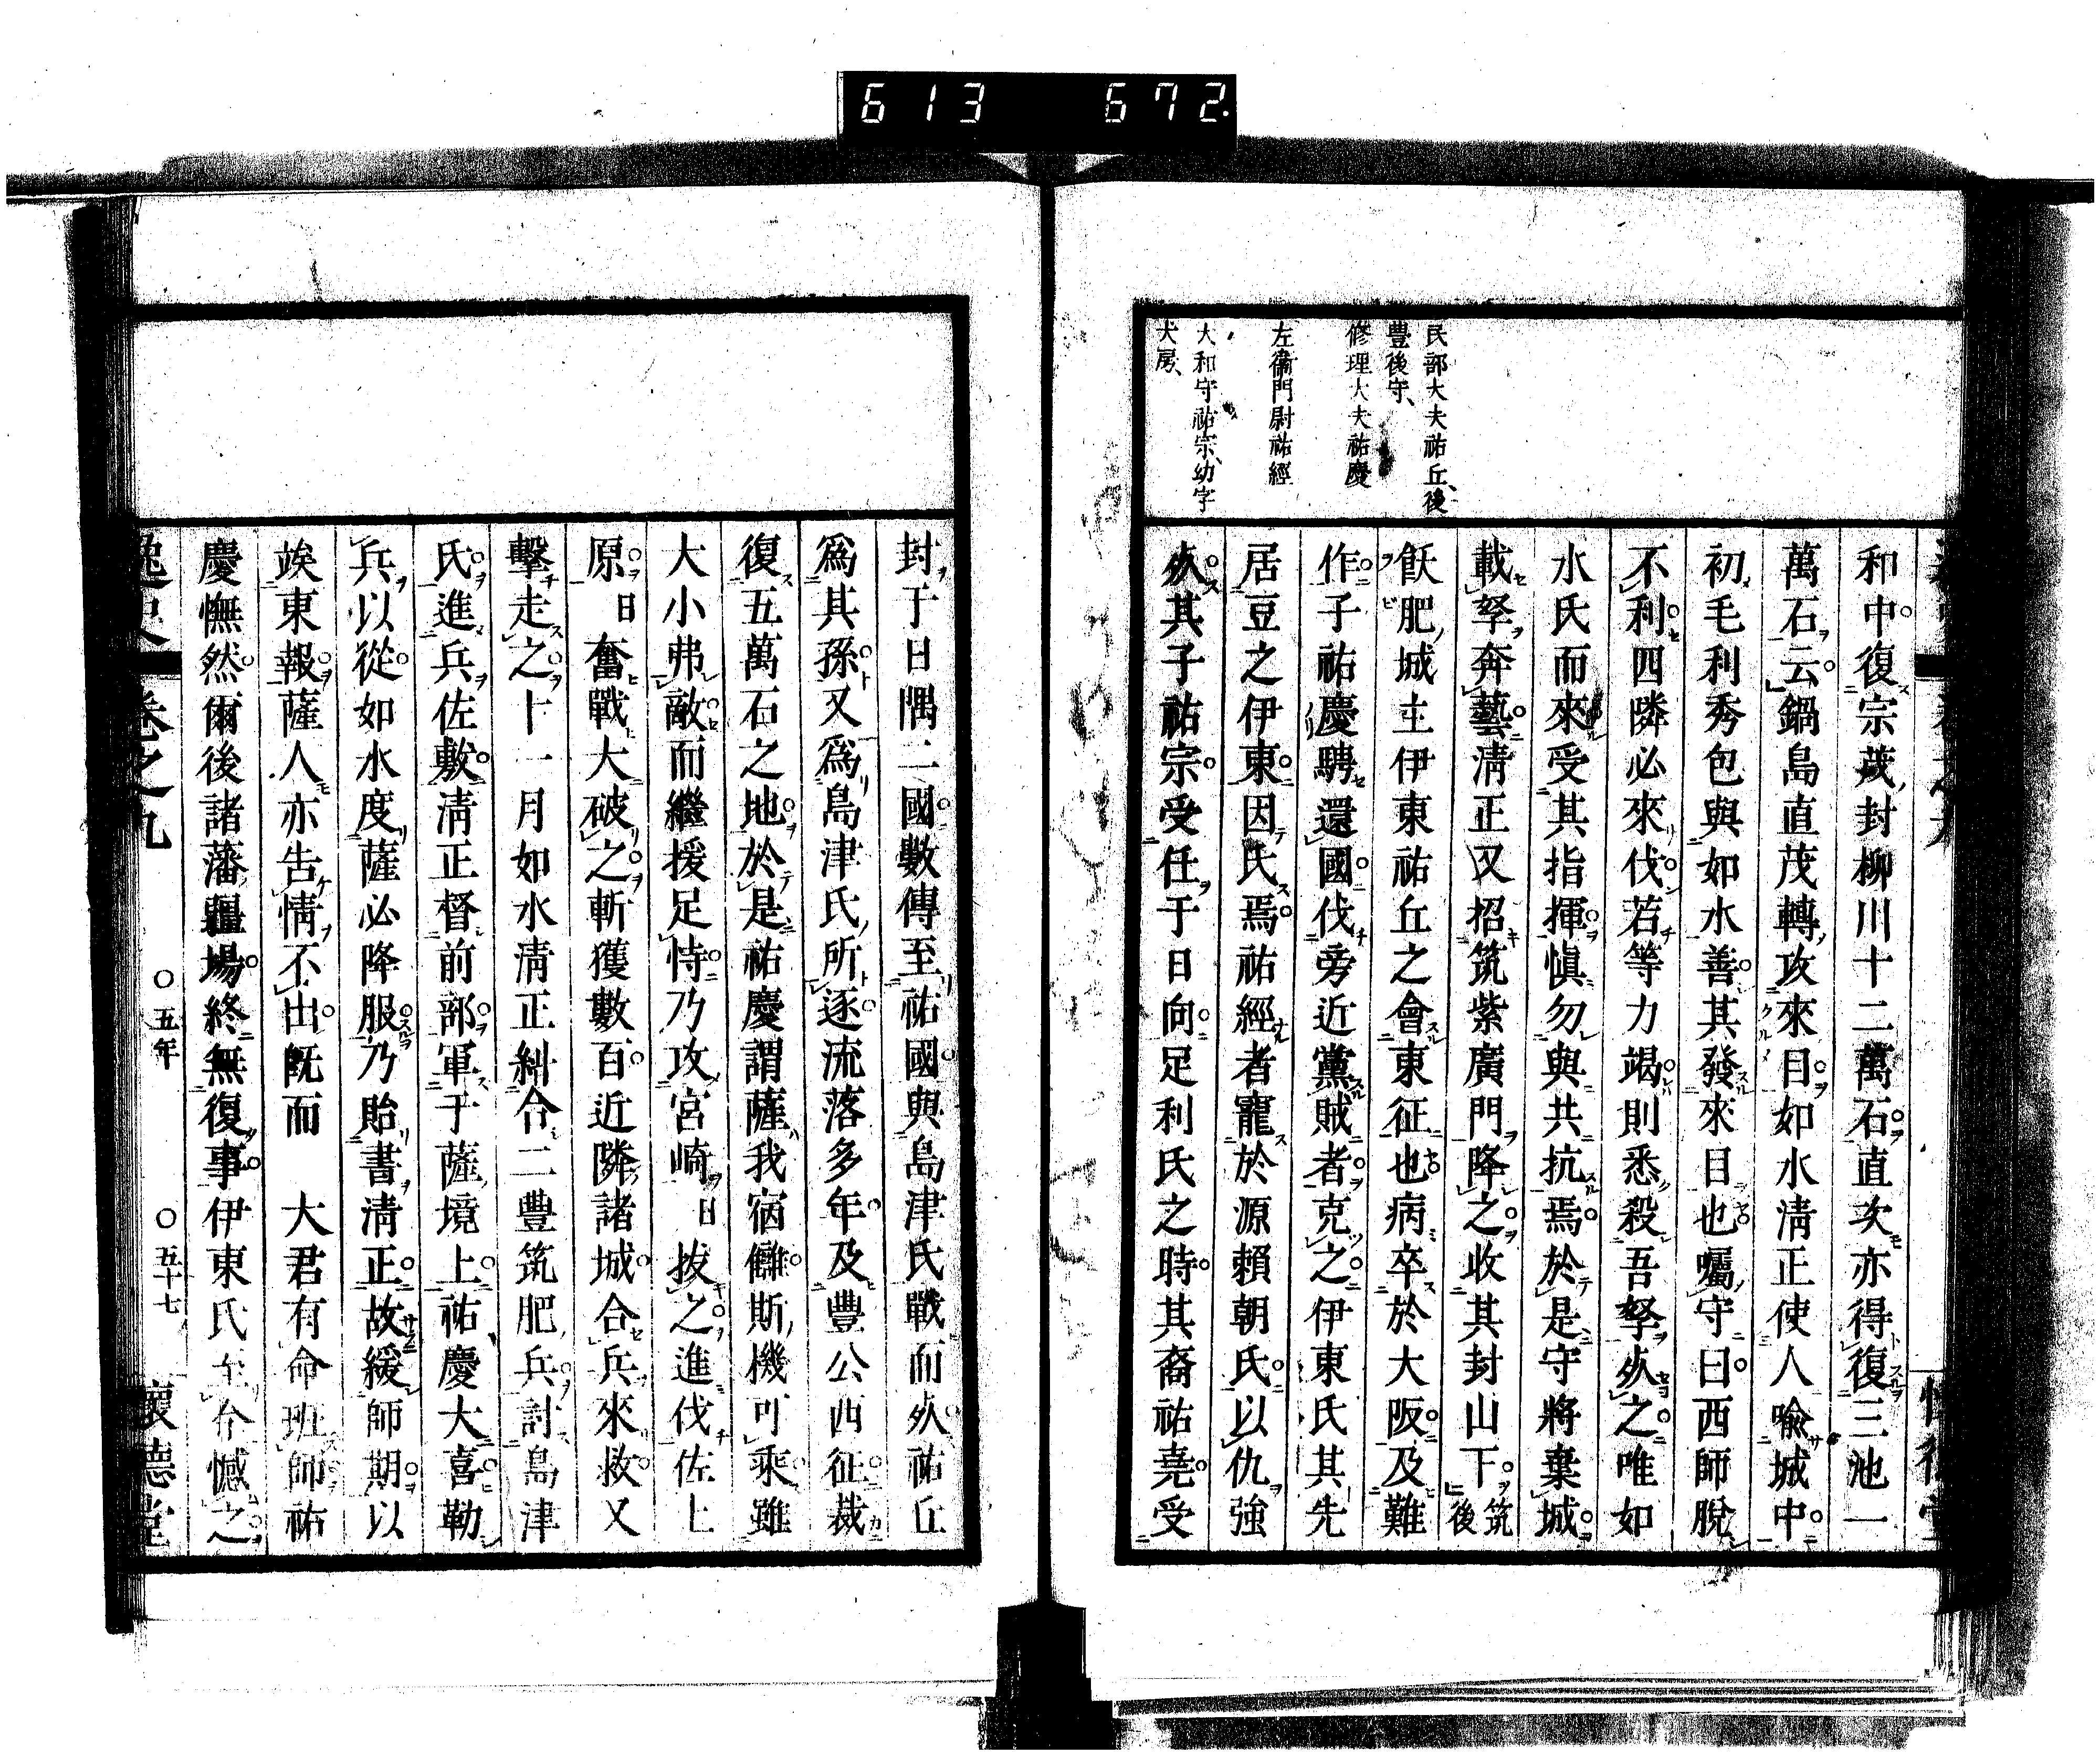 613 672.
民部大夫祐丘、後
豊後守、
修理大夫祐慶
左衞門尉祐經
大和守祐宗、幼字
犬房、
和中復宗茂封柳川十二萬石直次亦得復三池一
萬石云鍋島直茂轉攻來目如水清正使人喩城中
初毛利秀包與如水善其發來目也囑守曰西師脫
不利四隣必來伐若等力竭則悉殺吾孥歿之唯如
水氏而來受其指揮愼勿與共抗焉於是守將棄城
載孥奔藝清正又招筑紫廣門降之收其封山下筑
後
飫肥城主伊東祐丘之會東征也病卒於大阪及難
作子祐慶騁還國伐旁近黨賊者克之伊東氏其先
居豆之伊東因氏焉祐經者寵於源賴朝氏以仇強
歿其子祐宗受任于日向足利氏之時其裔祐堯受
封于日隅二國數傳至祐國與島津氏戰而歿祐丘
爲其孫又爲島津氏所逐流落多年及豐公西征裁
復五萬石之地於是祐慶謂薩我宿讎斯機可乘雖
大小弗敵而繼援足恃乃攻宮崎日拔之進伐佐土
原日奮戰大破之斬獲數百近隣諸城合兵來救又
擊走之十一月如水清正糾合二豐筑肥兵討島津
氏進兵佐敷清正督前部軍于薩境上祐慶大喜勒
兵以從如水度薩必降服乃貽書清正故緩師期以
竢東報薩人亦告情不出既而　大君有命班師祐
慶憮然爾後諸藩疆場終無復事伊東氏至今憾之
逸史 卷之九 〇五年 〇五十七 懷德堂